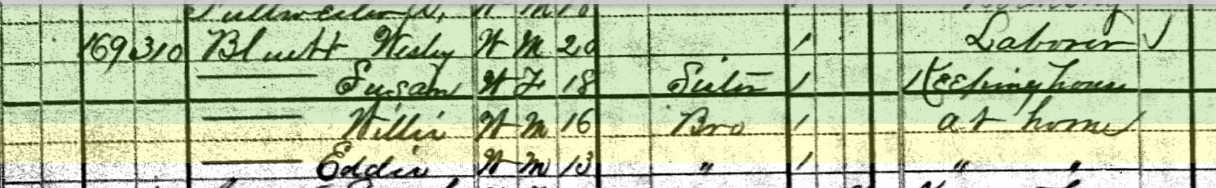 169 310 Bluett Wesley W M 20 1 Laborer
—— Susan W F 18 Sister 1 Keeping house
—— Willie W M 16 Bro 1 at home
—— Eddie W M 13 " 1 " "